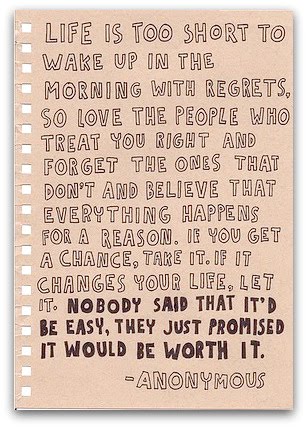 LIFE IS TOO SHORT TO
WAKE UP IN THE
MORNING WITH REGRETS,
SO LOVE THE PEOPLE WHO
TREAT YOU RIGHT AND
FORGET THE ONES THAT
DON'T AND BELIEVE THAT
EVERYTHING HAPPENS
FOR A REASON. IF YOU GET
A CHANCE, TAKE IT. IF IT
CHANGES YOUR LIFE, LET
IT. NOBODY SAID THAT IT'D
BE EASY, THEY JUST PROMISED
IT WOULD BE WORTH IT.
-ANONYMOUS